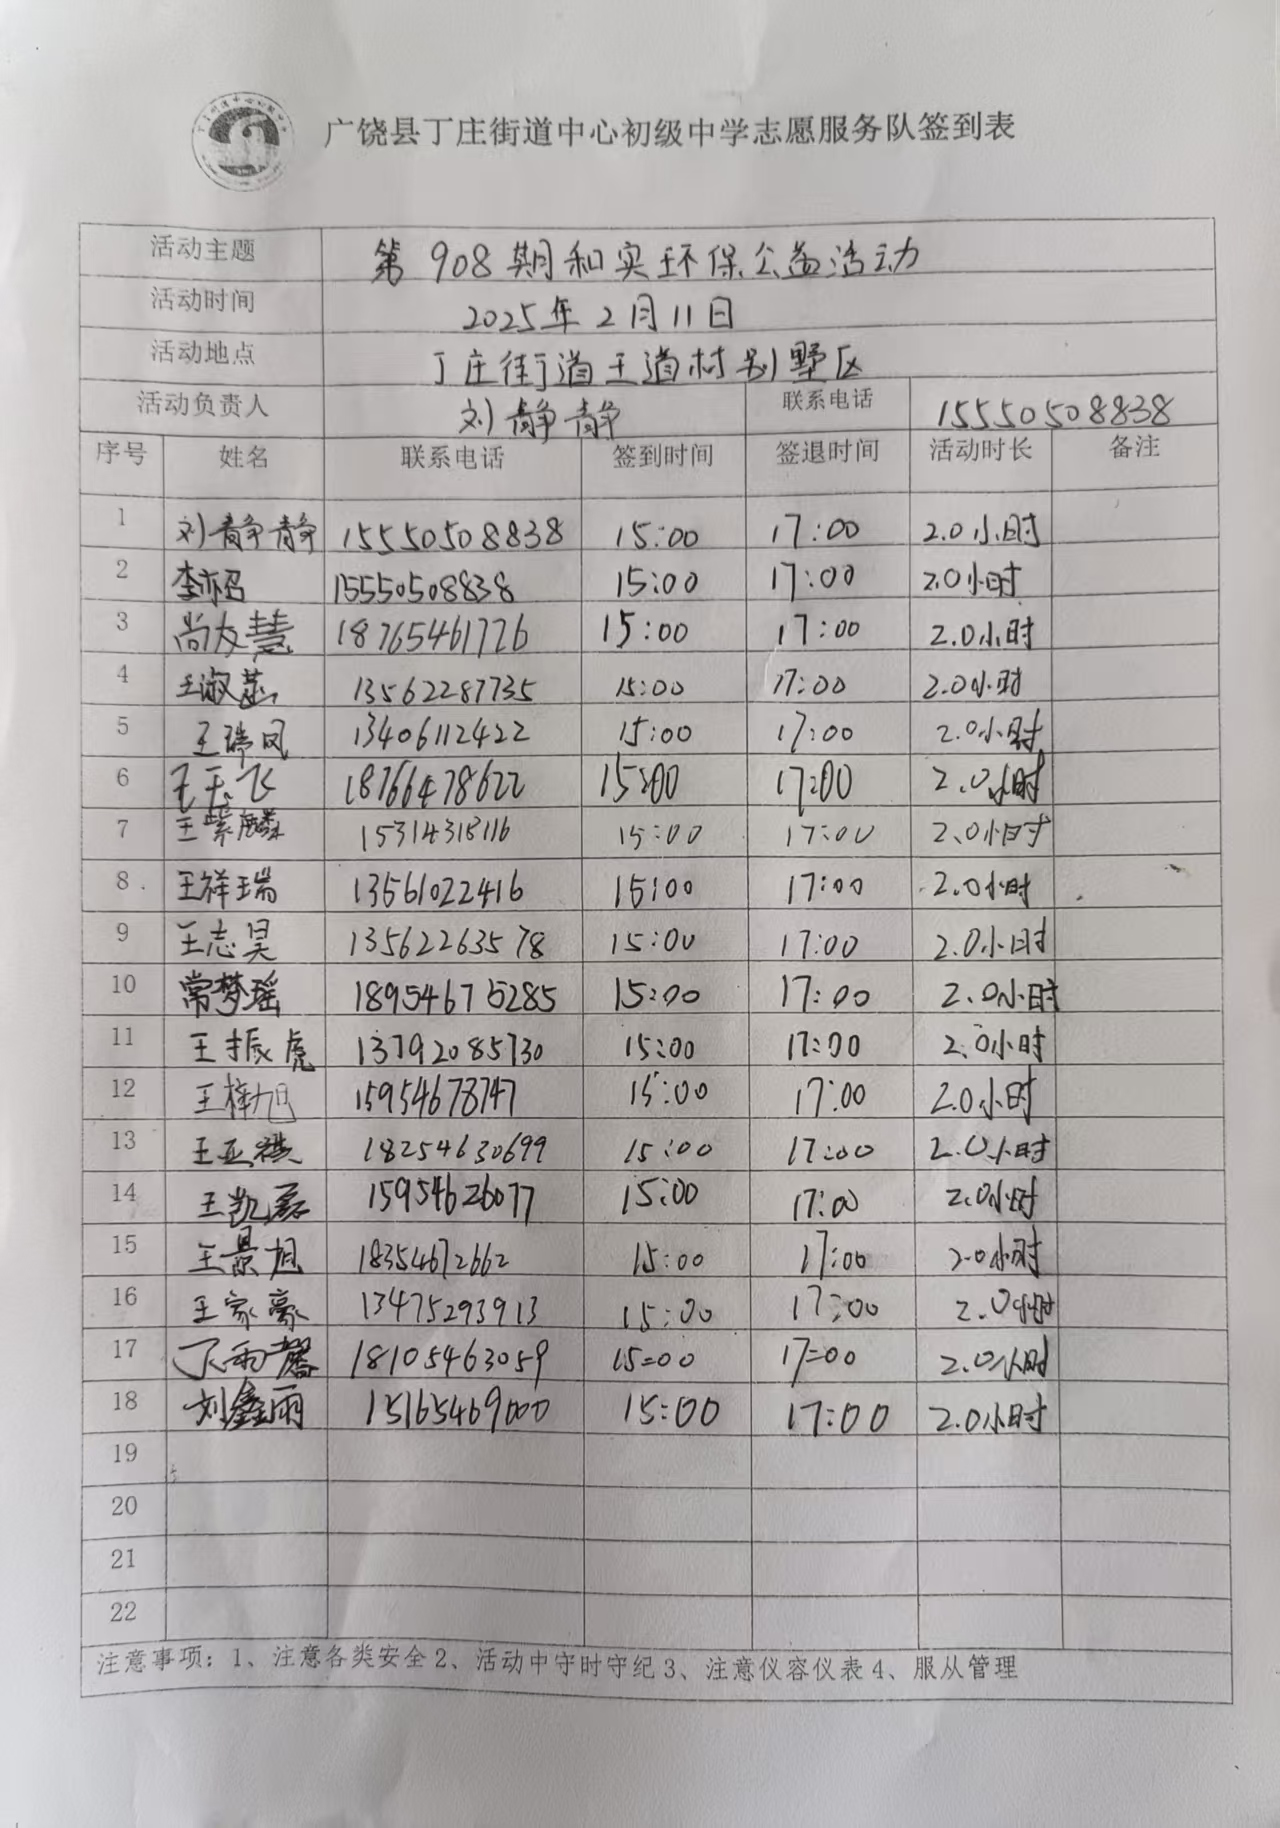 广饶县丁庄街道中心初级中学志愿服务队签到表
活动主题 第908期和实环保公益活动
活动时间 2025年2月11日
活动地点 丁庄街道王道村别墅区
活动负责人 刘静静 联系电话 15550508838
序号 姓名 联系电话 签到时间 签退时间 活动时长 备注
1 刘静静 15550508838 15:00 17:00 2.0小时
2 李亦招 15550508838 15:00 17:00 2.0小时
3 尚友慧 18765461726 15:00 17:00 2.0小时
4 王淑 13562287735 15:00 17:00 2.0小时
5 王瑞凤 13406112422 15:00 17:00 2.0小时
6 飞 18766478622 15:00 17:00 2.0小时
7 王紫麟 15314318116 15:00 17:00 2.0小时
8 王祥瑞 13561022416 15:00 17:00 2.0小时
9 王志昊 13562263578 15:00 17:00 2.0小时
10 常梦瑶 18954675285 15:00 17:00 2.0小时
11 王振虎 13792085730 15:00 17:00 2.0小时
12 王梓旭 15954678747 15:00 17:00 2.0小时
13 王亚祺 18254630699 15:00 17:00 2.0小时
14 王凯磊 15954626077 15:00 17:00 2.0小时
15 王景旭 18354672662 15:00 17:00 2.0小时
16 王家豪 13475293913 15:00 17:00 2.0小时
17 丁雨馨 18105463059 15:00 17:00 2.0小时
18 刘鑫雨 15165469000 15:00 17:00 2.0小时
19
20
21
22
注意事项：1、注意各类安全2、活动中守时守纪3、注意仪容仪表4、服从管理